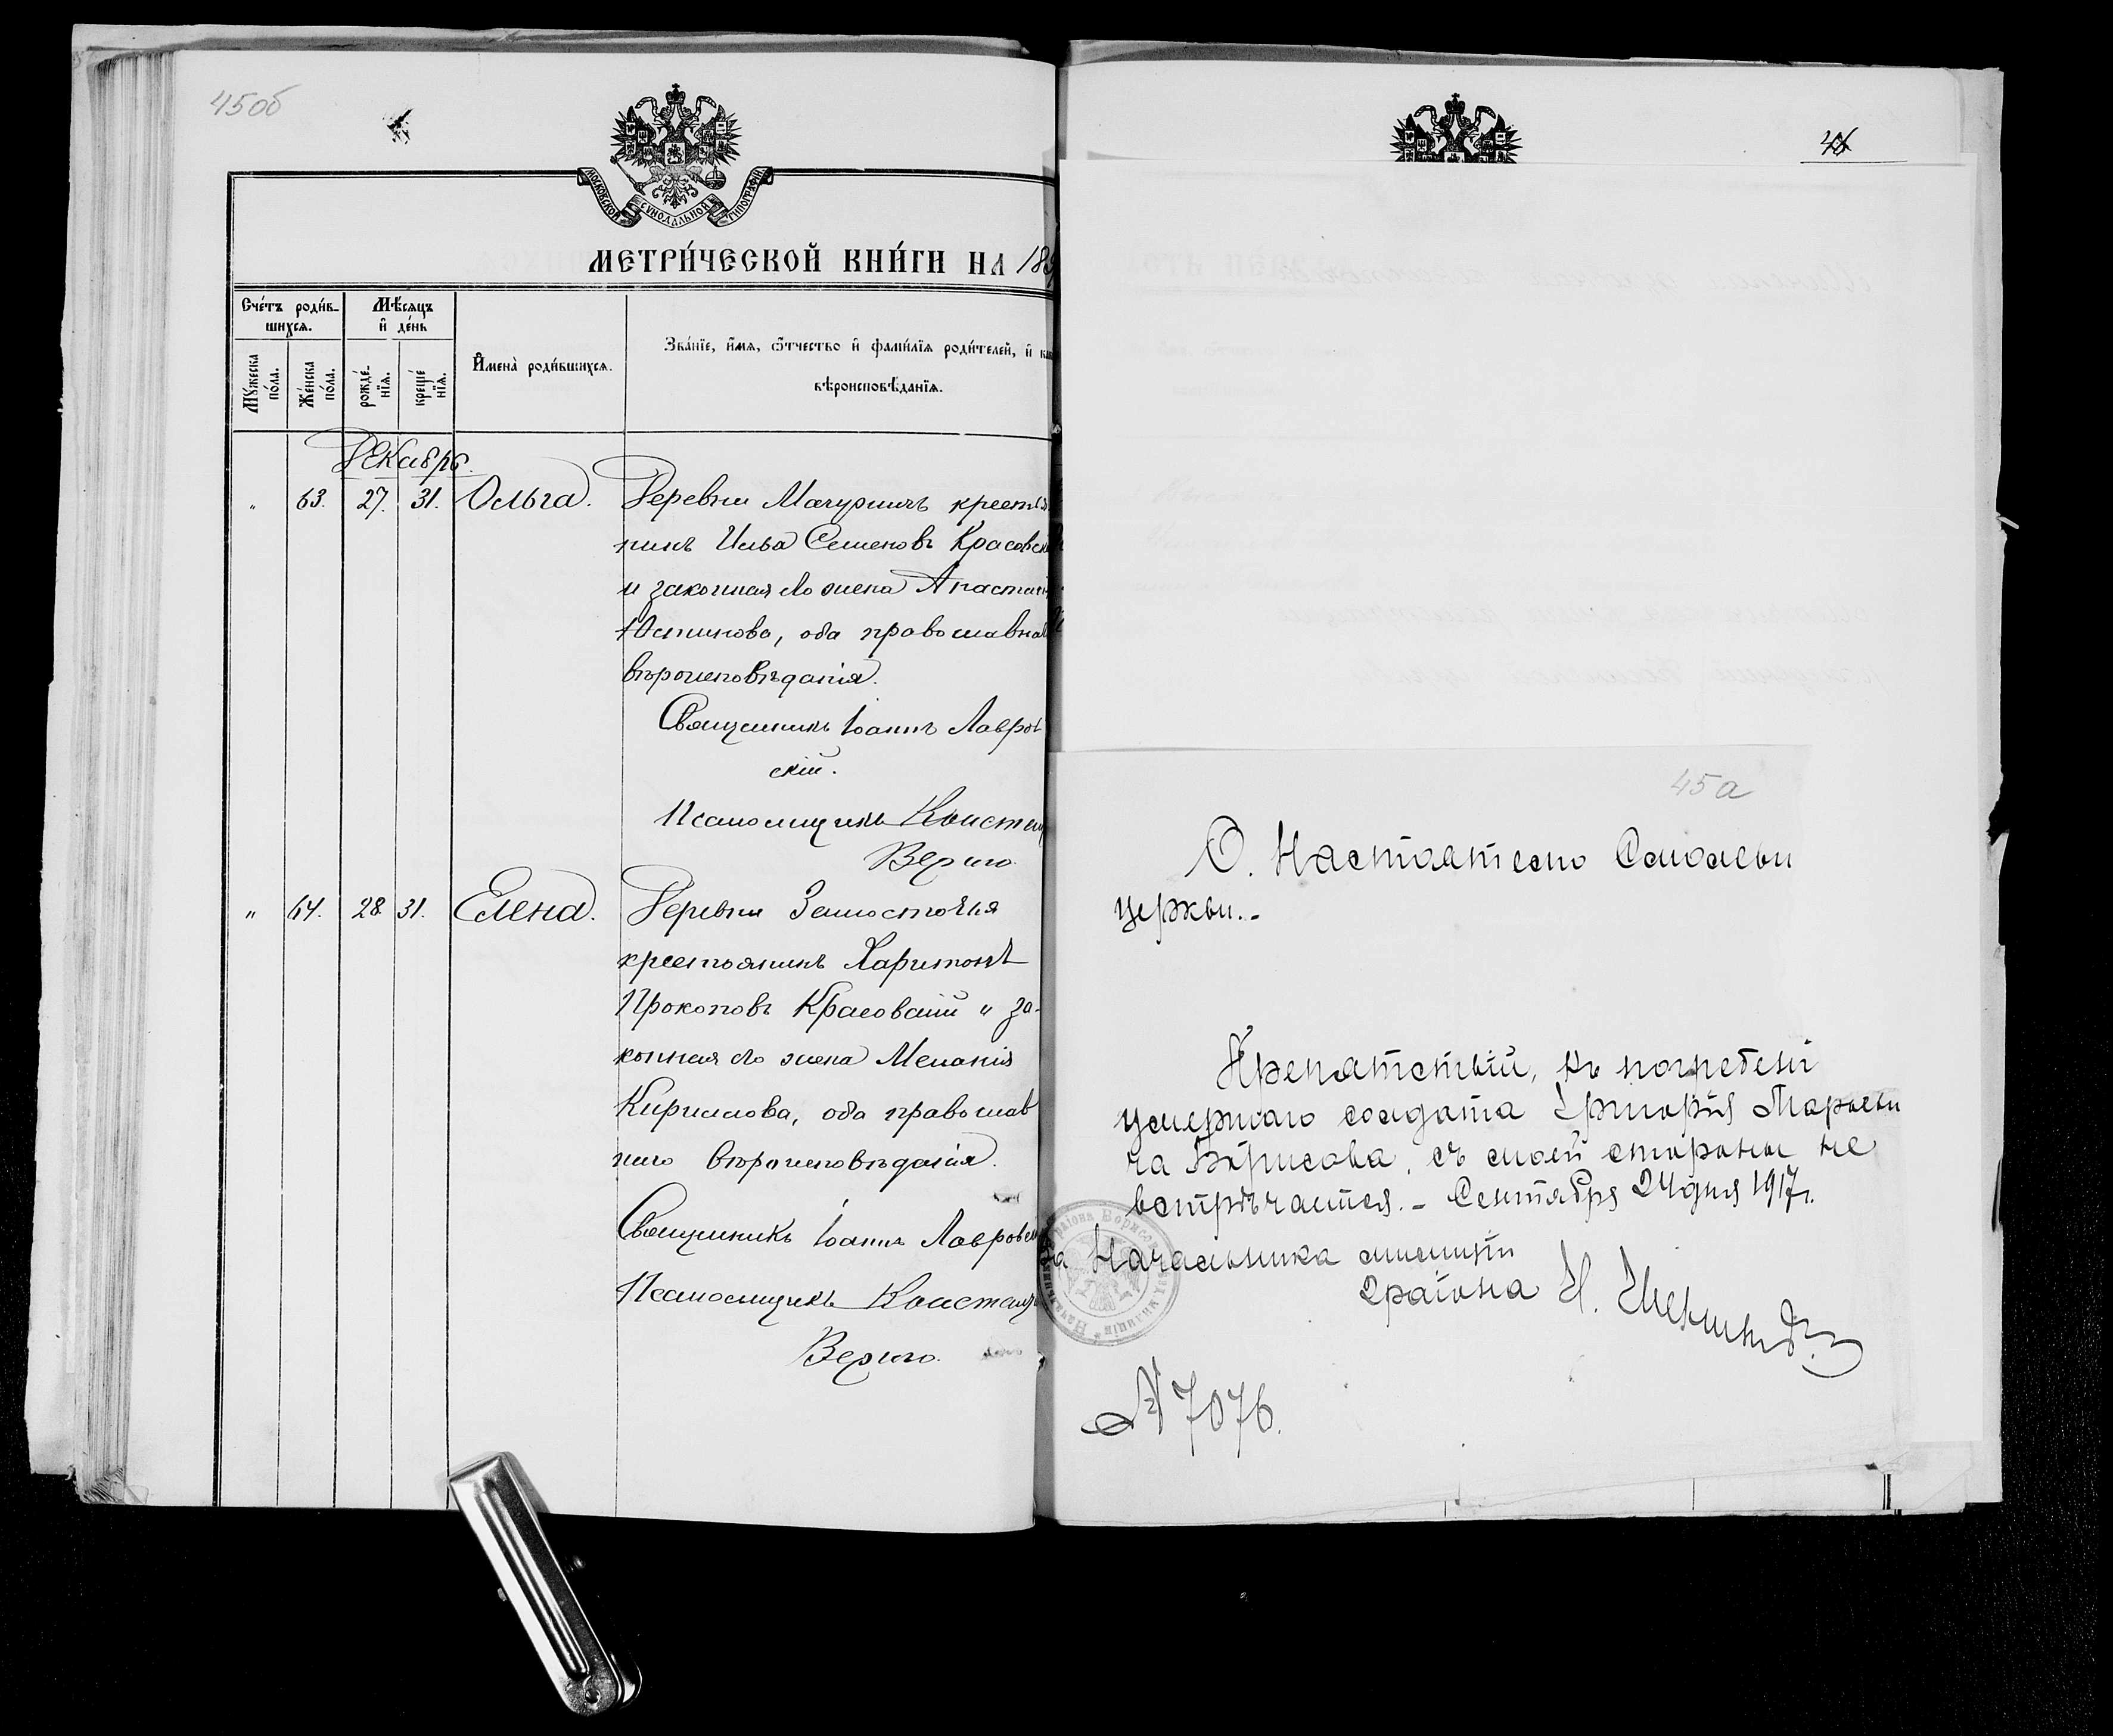 45об
МОСКОВСКОЙ СѴНОДАЛЬНОЙ ТИПОГРАФІИ
МЕТРИ́ЧЕСКОЙ КНИ́ГИ НА 189
Сче́тъ роди́в-
шихся.
Мѣ́сяцъ
и҆ де́нь
Мꙋ́жеска
по́ла.
Же́нска
по́ла.
рожде́-
нїѧ.
креще́
нїѧ.
И҆мена̀ роди́вшихсѧ.
Зва́нїе, и҆́мѧ, ѻ҆́тчество и҆ фами́лїѧ роди́телей, и҆
вѣроисповѣ́данїѧ.
Декабрь.
" 63. 27. 31. Ольга.
Деревни Мачужичъ крестья
нинъ Илья Семеновъ Красовск
и законная его жена Анастасі
Юстинова, оба православна
вѣроисповѣданія.
Священникъ Іоаннъ Лавров
скій.
Псаломщикъ Констан
Верже
" 64. 28. 31. Елена.
Деревни Замосточья
крестьянинъ Харитонъ
Прокоповъ Красовскій и за-
конная его жена Меланія
Кириллова, оба православ
наго вѣроисповѣданія.
Священникъ Іоаннъ Лавровск
Псаломщикъ Констан
46
45а
О. Настоятелю
церкви.-
Препятствій, къ погребені
умершаго солдата Григорія
Борисова, съ моей стороны не
встрѣчается. - Сентября 24 дня 1917 г.
Начальника милиціи
2 раіона
№ 7076.